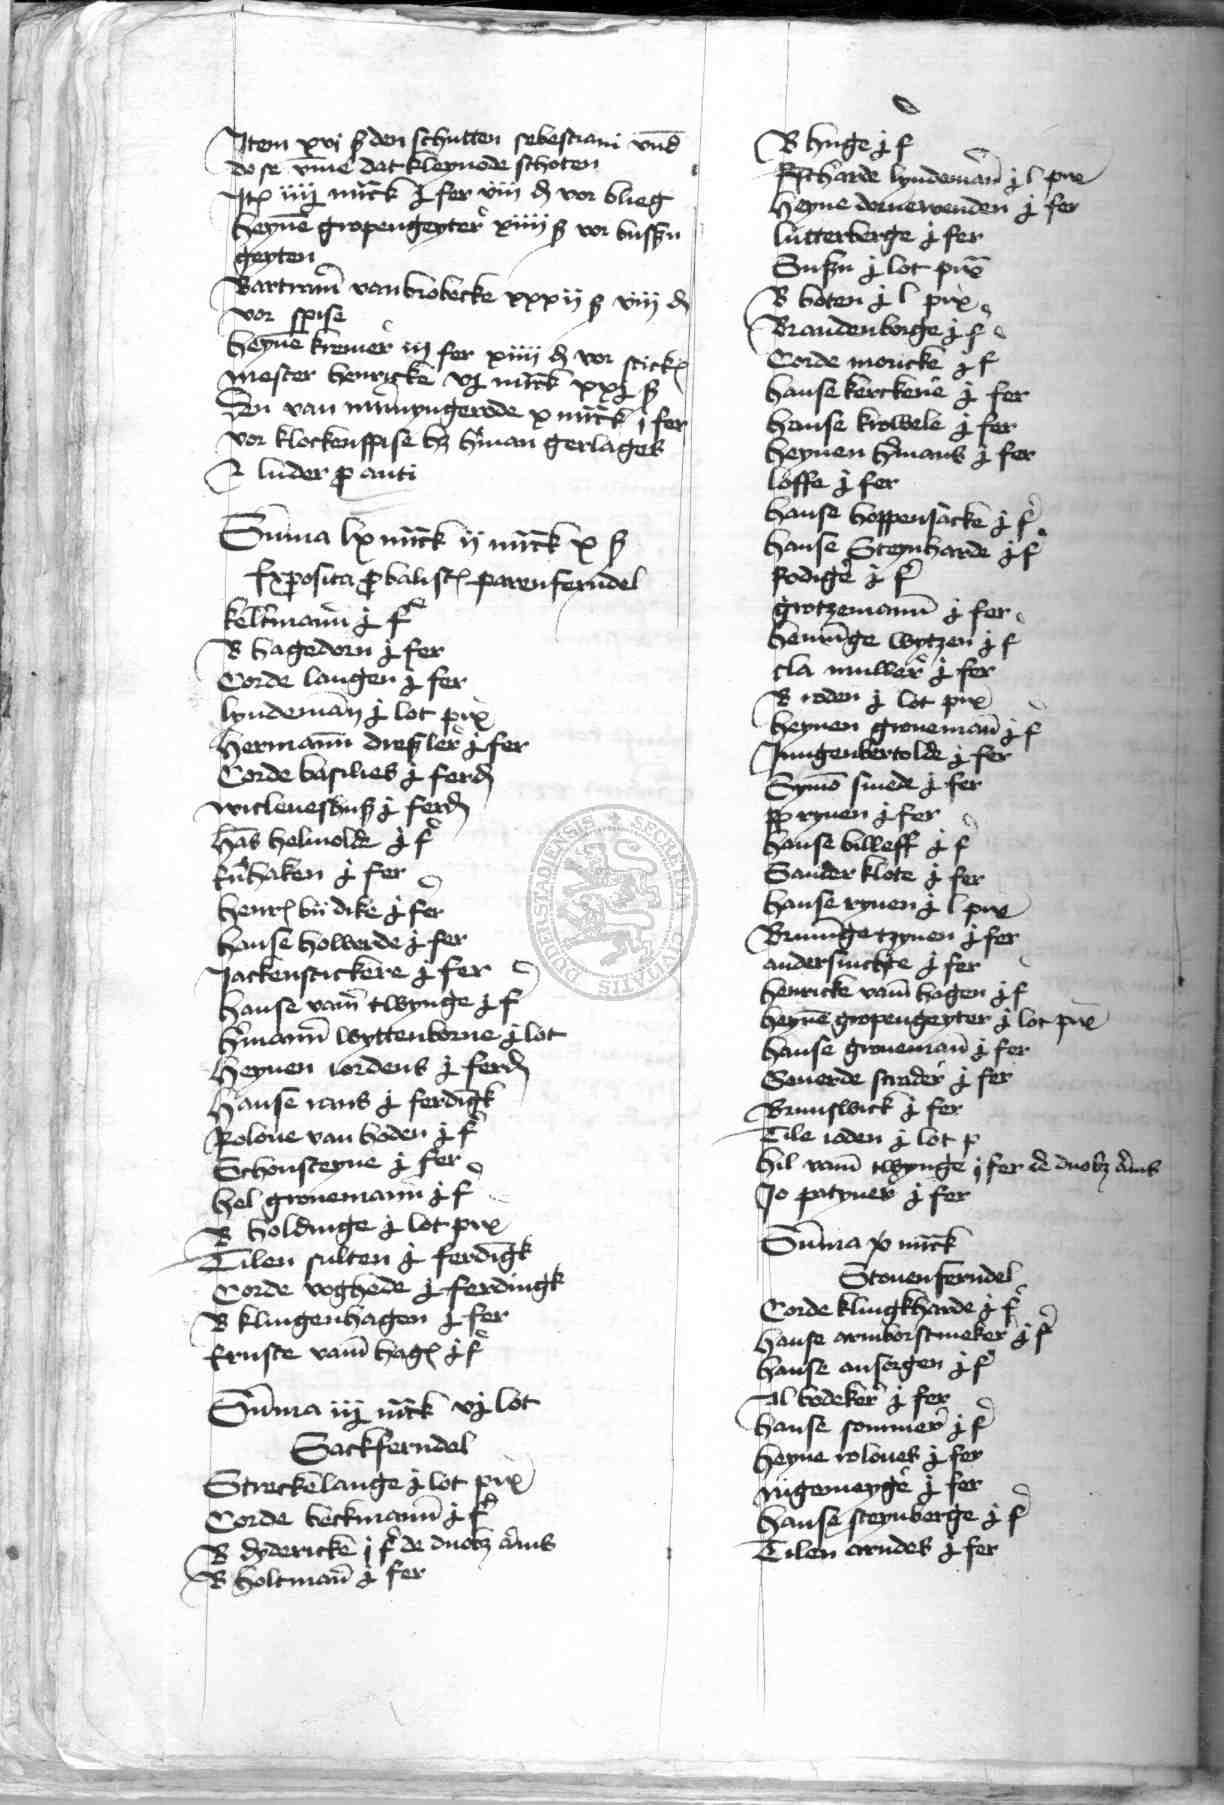 Item xvi ß den schutten sebestiani vnd
do se vmme dat kleynode schoten
Itē iiij mrck j fer viii ₰ vor blieg
heyne gropengeyter xiiii ß vor bussen
geyten
Bartram van brobecke xxxii ß viii ₰
vor spise
heyne kremer iij fer xiiii ₰ vor stick
mester henricke vj mrck xxj ß
Den van mrnyngerode x mrck j fer
vor klockenspise hz hman gerlages
luder p anti
Summa lx mrck ij mrck x ß
Exposita p balist parenferndel
keltmann j f
B hagedorn j fer
Corde langen j fer
lyndeman j lot pux
hermann dreßler j fer
Corde basilies j ferd
witleneshuß j ferd
hās helmolde j f
haken j fer
henr bii dike j fer
hanse holwerde j fer
Jackenstickere j fer
hanse vam twynge j f
hmann wyttenborne j lot
heynen iordens j ferd
hansen ians j ferdingk
Rolone van hoden j f
Schonsteyne j fer
hel gronemann j f
B holdinge j lot pux
Tilen sulten j ferdingk
Corde voghede j ferdingk
B klingenhagen j fer
Ernste vam hag j f
Summa iij mrck vj lot
Sackferndel
Streckelange j lot pux
Corde beckmann j f
B dydericke j f de duobz annis
B holtman j fer
B huge j f
Richarde lyndeman j l pux
heyne dornewenden j fer
lutterberge j fer
Sußen j lot pux
B boten j l pux
Brandenborge j f
Corde moricke j f
hanse kerckene j fer
hanse krowele j fer
heynen hmans j fer
loffe j fer
hanse hoppensacke j f
hanse Steynharde j f
Rodiger j f
grotzemann j fer
henninge wytzen j f
cla muller j fer
B roden j lot pux
heynen gronemann j f
Jungenbertolde j fer
Symon smede j fer
rynen j fer
hanse billeff j f
Sander klote j fer
hanse rynen j l pux
Brunninge tzynen j fer
andersinckte j fer
henricke vam hagen j f
heyne gropengeyter j lot pux
hanse gronemann j fer
Senerde scrader j fer
Brunswick j fer
Tile roden j lot p
hil vam twynge j fer de duobz annis
Jo patyner j fer
Summa x mrck
Stouenferndel
Corde klingkharde j f
hanse armborstmeker j f
hanse ansorgen j f
Al bodeker j fer
hanse sommer j f
heyne rolones j fer
nigemeyger j fer
hanse steynberge j f
Tilen arndes j fer
SECRETUM CIVITATIS DUDERSTADIENSIS